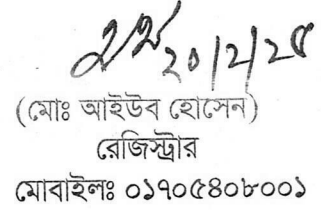 ২০/২/২৫
(মোঃ আইউব হোসেন)
রেজিস্ট্রার
মোবাইলঃ ০১৭০৫৪০৮০০১